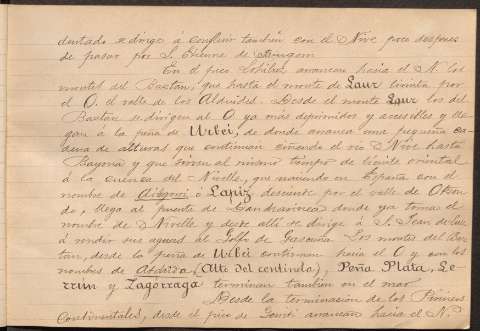 dentado se dirige á confluir también con el Nive poco despues
de pasar por S. Etienne de
En el pico Lohiluz, arrancan hacia el N. los
montes del Baztan, que hasta el monte de Laur limita por
el O. el valle de los Alduides. Desde el monte Laur los del
Baztan se dirigen al O. ya mas deprimidos y accesibles y lle
gan á la peña de Urbei, de donde arranca una pequeña ca
dena de alturas que continuan ciñendo el rio Nive hasta
Bayona y que sirven al mismo tiempo de limite oriental
á la cuenca del Nivelle, que naciendo en España con el
nombre de ó Lapiz desciende por el valle de
do, llega al puente de Dandravinea donde ya toma el
nombre de Nivelle y desde alli se dirige á S. Jean de Luz
á rendir sus aguas al Golfo de Gascuña. Los montes del Baz
tan, desde la peña de Urbei continuan hacia el O. y con los
nombres de (Alto del centinela), Peña Plata, La
rrun y Zagorraga terminan tambien en el mar.
Desde la terminacion de los Pirineos
Continentales, desde el pico de arrancan hacia el N.